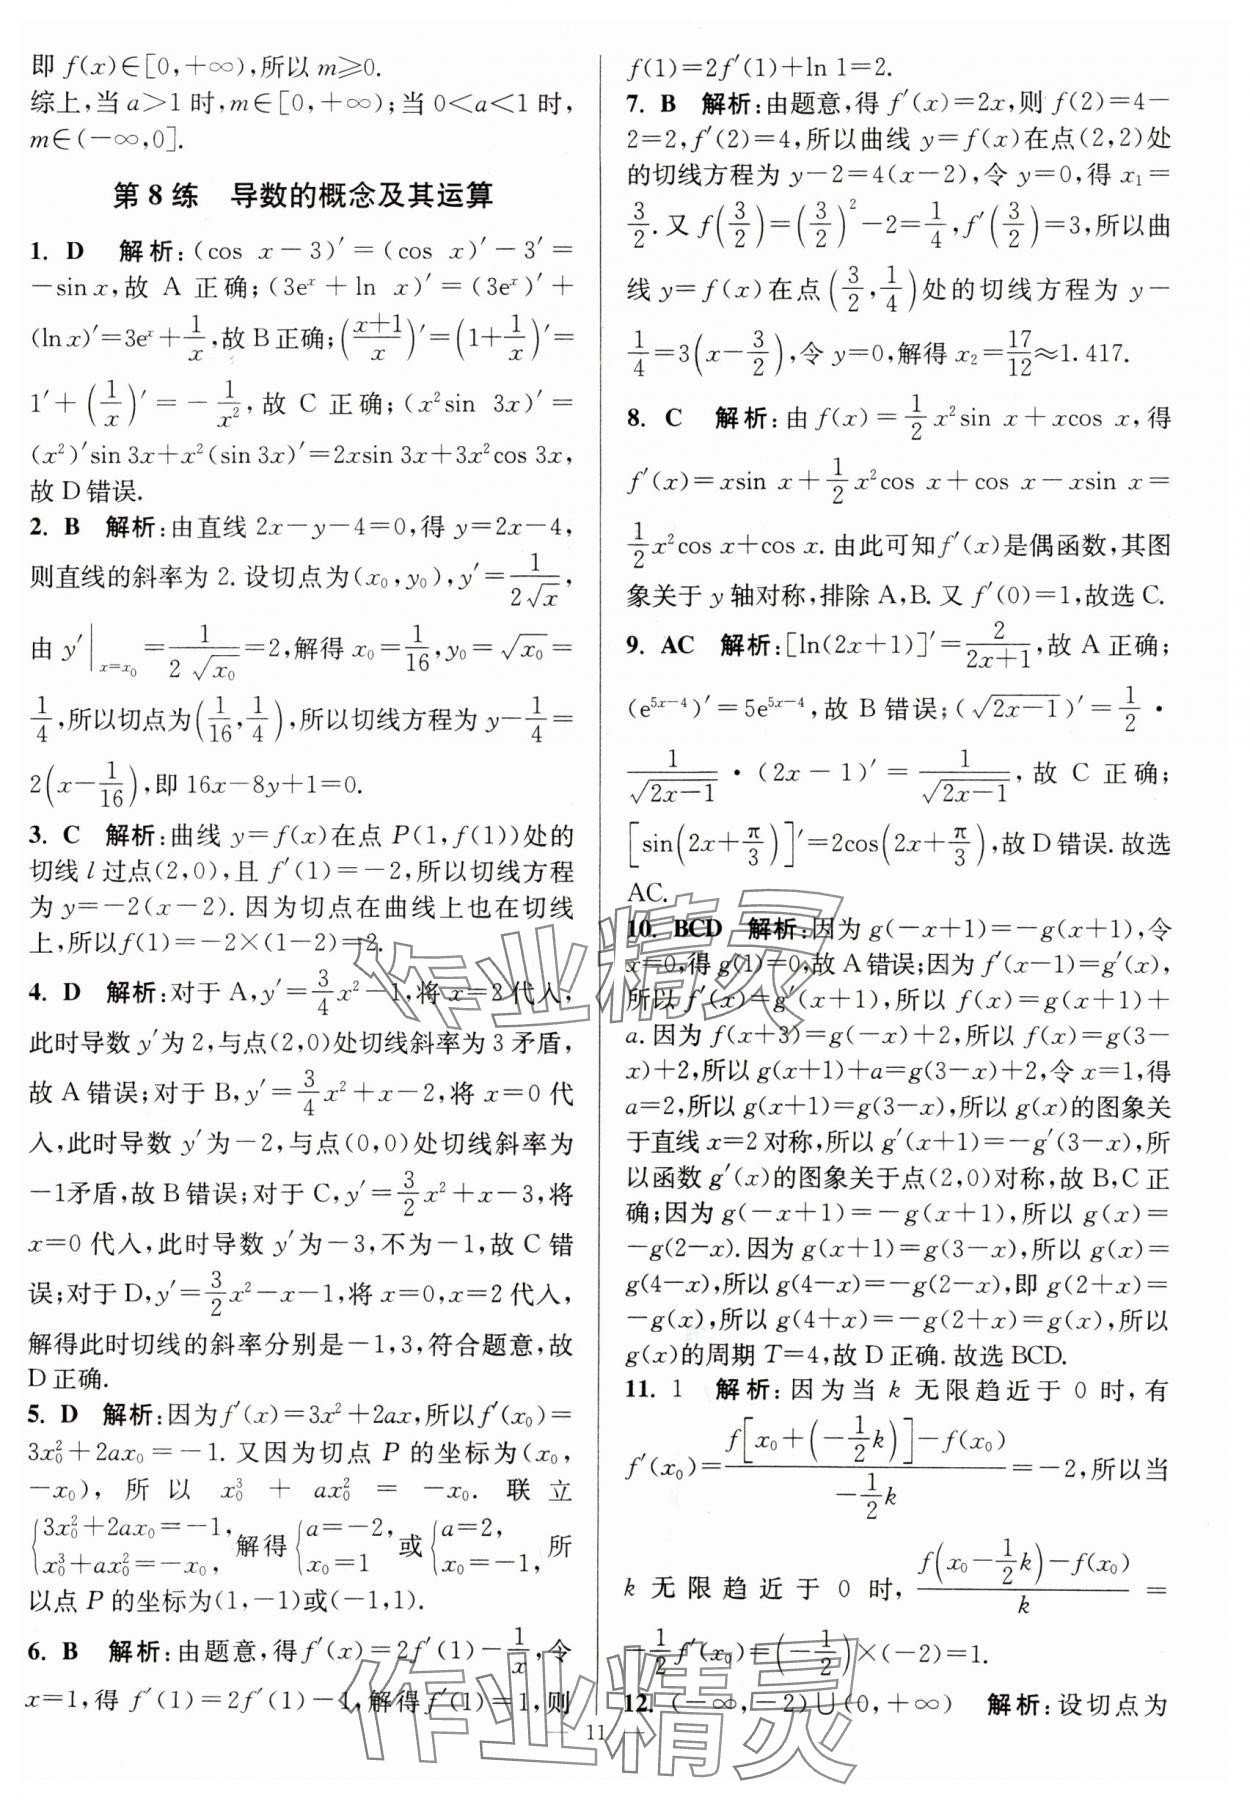 即 f(x)∈[0,+∞),所以 m⩾0.
综上,当 a>1 时,m∈[0,+∞);当 0<a<1 时,
m∈(-∞,0].
第 8 练 导数的概念及其运算
1. D 解析:(cos x-3)′=(cos x)′-3′=
-sin x,故 A 正确;(3eˣ+ln x)′=(3eˣ)′+
(ln x)′=3eˣ+1/x,故 B 正确;((x+1)/x)′=(1+1/x)′=
1′+(1/x)′=-1/x²,故 C 正确;(x²sin 3x)′=
(x²)′sin 3x+x²(sin 3x)′=2xsin 3x+3x²cos 3x,
故 D 错误.
2. B 解析:由直线 2x-y-4=0,得 y=2x-4,
则直线的斜率为 2. 设切点为(x₀,y₀),y′=1/(2√x),
由 y′|ₓ₌ₓ₀=1/(2√x₀)=2,解得 x₀=1/16,y₀=√x₀=
1/4,所以切点为(1/16,1/4),所以切线方程为 y-1/4=
2(x-1/16),即 16x-8y+1=0.
3. C 解析:曲线 y=f(x)在点 P(1,f(1))处的
切线 l 过点(2,0),且 f′(1)=-2,所以切线方程
为 y=-2(x-2). 因为切点在曲线上也在切线
上,所以f(1)=-2×(1-2)=2.
4. D 解析:对于 A,y′=3/4x²-1,将 x=2 代入,
此时导数 y′为 2,与点(2,0)处切线斜率为 3 矛盾,
故 A 错误;对于 B,y′=3/4x²+x-2,将 x=0 代
入,此时导数 y′为-2,与点(0,0)处切线斜率为
-1矛盾,故 B 错误;对于 C,y′=3/2x²+x-3,将
x=0 代入,此时导数 y′为-3,不为-1,故 C 错
误;对于 D,y′=3/2x²-x-1,将 x=0,x=2 代入,
解得此时切线的斜率分别是-1,3,符合题意,故
D 正确.
5. D 解析:因为f′(x)=3x²+2ax,所以f′(x₀)=
3x₀²+2ax₀=-1. 又因为切点 P 的坐标为(x₀,
-x₀),所以 x₀³+ax₀²=-x₀. 联立
{3x₀²+2ax₀=-1, x₀³+ax₀²=-x₀, 解得{a=-2, x₀=1 或{a=2, x₀=-1, 所
以点 P 的坐标为(1,-1)或(-1,1).
6. B 解析:由题意,得f′(x)=2f′(1)-1/x,令
x=1,得 f′(1)=2f′(1)-1,解得f′(1)=1,则
f(1)=2f′(1)+ln 1=2.
7. B 解析:由题意,得 f′(x)=2x,则 f(2)=4-
2=2,f′(2)=4,所以曲线 y=f(x)在点(2,2)处
的切线方程为 y-2=4(x-2),令 y=0,得 x₁=
3/2.又 f(3/2)=(3/2)²-2=1/4,f′(3/2)=3,所以曲
线 y=f(x)在点(3/2,1/4)处的切线方程为 y-
1/4=3(x-3/2),令 y=0,解得 x₂=17/12≈1.417.
8. C 解析:由 f(x)=1/2x²sin x+xcos x,得
f′(x)=xsin x+1/2x²cos x+cos x-xsin x=
1/2x²cos x+cos x. 由此可知f′(x)是偶函数,其图
象关于 y 轴对称,排除 A,B. 又 f′(0)=1,故选 C.
9. AC 解析:[ln(2x+1)]′=2/(2x+1),故 A 正确;
(e⁵ˣ⁻⁴)′=5e⁵ˣ⁻⁴,故 B 错误;(√(2x-1))′=1/2·
1/√(2x-1)·(2x-1)′=1/√(2x-1),故 C 正确;
[sin(2x+π/3)]′=2cos(2x+π/3),故 D 错误.故选
AC.
10. BCD 解析:因为 g(-x+1)=-g(x+1),令
x=0,得 g(1)=0,故 A 错误;因为 f′(x-1)=g′(x),
所以 f′(x)=g′(x+1),所以 f(x)=g(x+1)+
a.因为 f(x+3)=g(-x)+2,所以 f(x)=g(3-
x)+2,所以 g(x+1)+a=g(3-x)+2,令 x=1,得
a=2,所以 g(x+1)=g(3-x),所以 g(x)的图象关
于直线 x=2 对称,所以 g′(x+1)=-g′(3-x),所
以函数 g′(x)的图象关于点(2,0)对称,故 B,C 正
确;因为 g(-x+1)=-g(x+1),所以 g(x)=
-g(2-x).因为 g(x+1)=g(3-x),所以 g(x)=
g(4-x),所以 g(4-x)=-g(2-x),即 g(2+x)=
-g(x),所以 g(4+x)=-g(2+x)=g(x),所以
g(x)的周期 T=4,故 D 正确.故选 BCD.
11. 1 解析:因为当 k 无限趋近于 0 时,有
f′(x₀)=(f[x₀+(-1/2k)]-f(x₀))/(-1/2k)=-2,所以当
k 无限趋近于 0 时,(f(x₀-1/2k)-f(x₀))/k=
-1/2f′(x₀)=(-1/2)×(-2)=1.
12. (-∞,-2)∪(0,+∞) 解析:设切点为
— 11 —
作业精灵
作业精灵